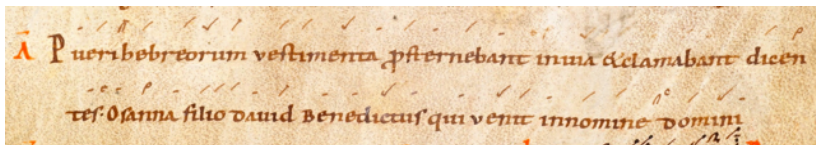 A Pueri hebreorum vestimenta ꝓsternebant inuia &clamabant dicen
tes· Osanna filio Dauid Benedictus qui venit innomine Domini